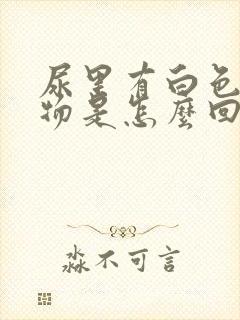 尿里有白色
物是怎麼回
淼不可言